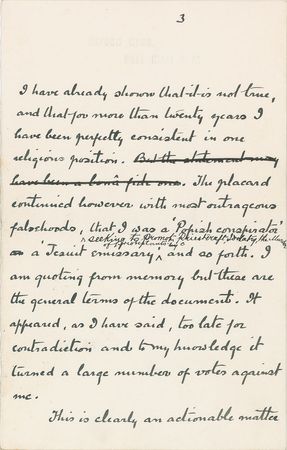 3
I have already shown that it is not true,
and that for more than twenty years I
have been perfectly consistent in one
religious position. But the statement may
have been a bonâ fide one. The placard
continued however with most outrageous
falsehoods, that I was a 'Popish conspirator'
seeking to
a Jesuit emissary and so forth. I
am quoting from memory but these are
the general terms of the document. It
appeared, as I have said, too late for
contradiction and to my knowledge it
turned a large number of votes against
me.
This is clearly an actionable matter